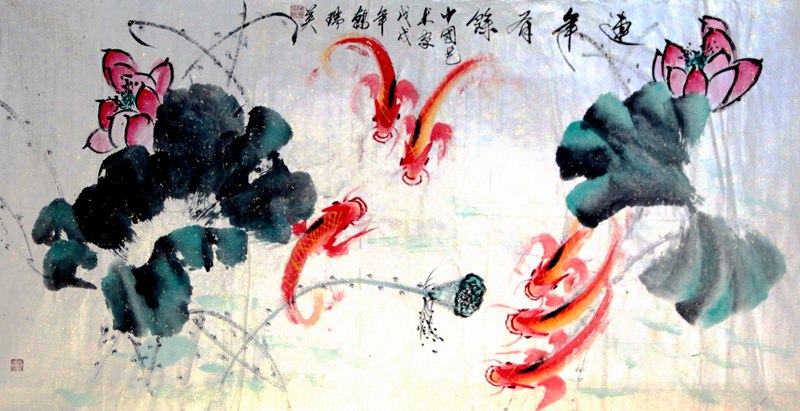 連年有餘
中國艺
术家
戊戌
年
瑞英